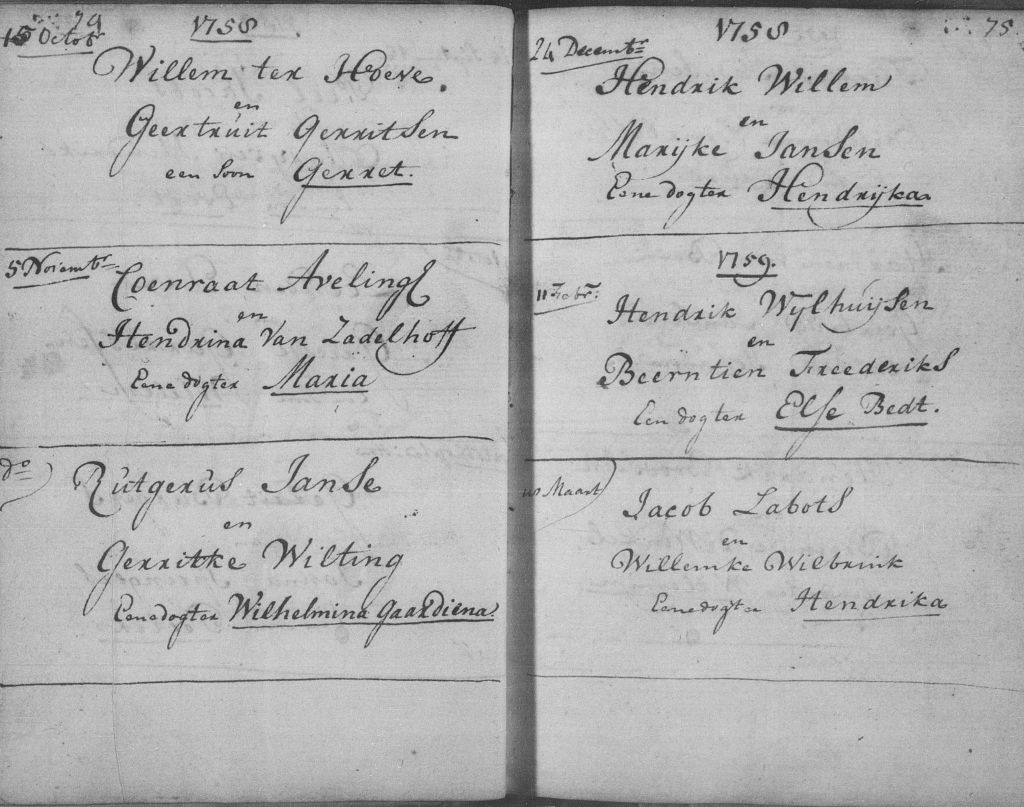 1758
15 Octobr
Willem ter Hoeve.
en
Geertruit Gerritsen
een soon Gerret.
5 Novembr
Coenraat Aveling
en
Hendrina Van Zadelhoff
Eene dogter Maria
do
Rutgerus Janse
en
Gerritke Wilting
Eene dogter Wilhelmina Gaardiena.
1758
75.
24 Decembr
Hendrik Willem
en
Marijke Jansen
Eene dogter Hendrijka.
1759.
11 Febr:
Hendrik Wylhuijsen
en
Beerntien Freederiks
Een dogter Else Bedt.
Maart
Jacob Labots
en
Willemke Wilbrink
Eene dogter Hendrika